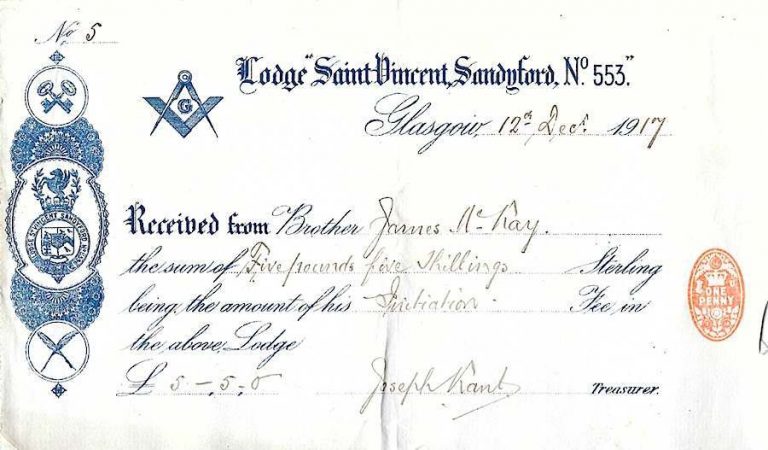 No 5
G
Lodge "Saint Vincent, Sandyford, No. 553."
Glasgow, 12th Decr. 1917
Received from Brother James McKay.
the sum of Five pounds five shillings Sterling
being the amount of his Initiation Fee in
the above Lodge
£ 5-,5,0
Joseph Treasurer.
ONE
PENNY